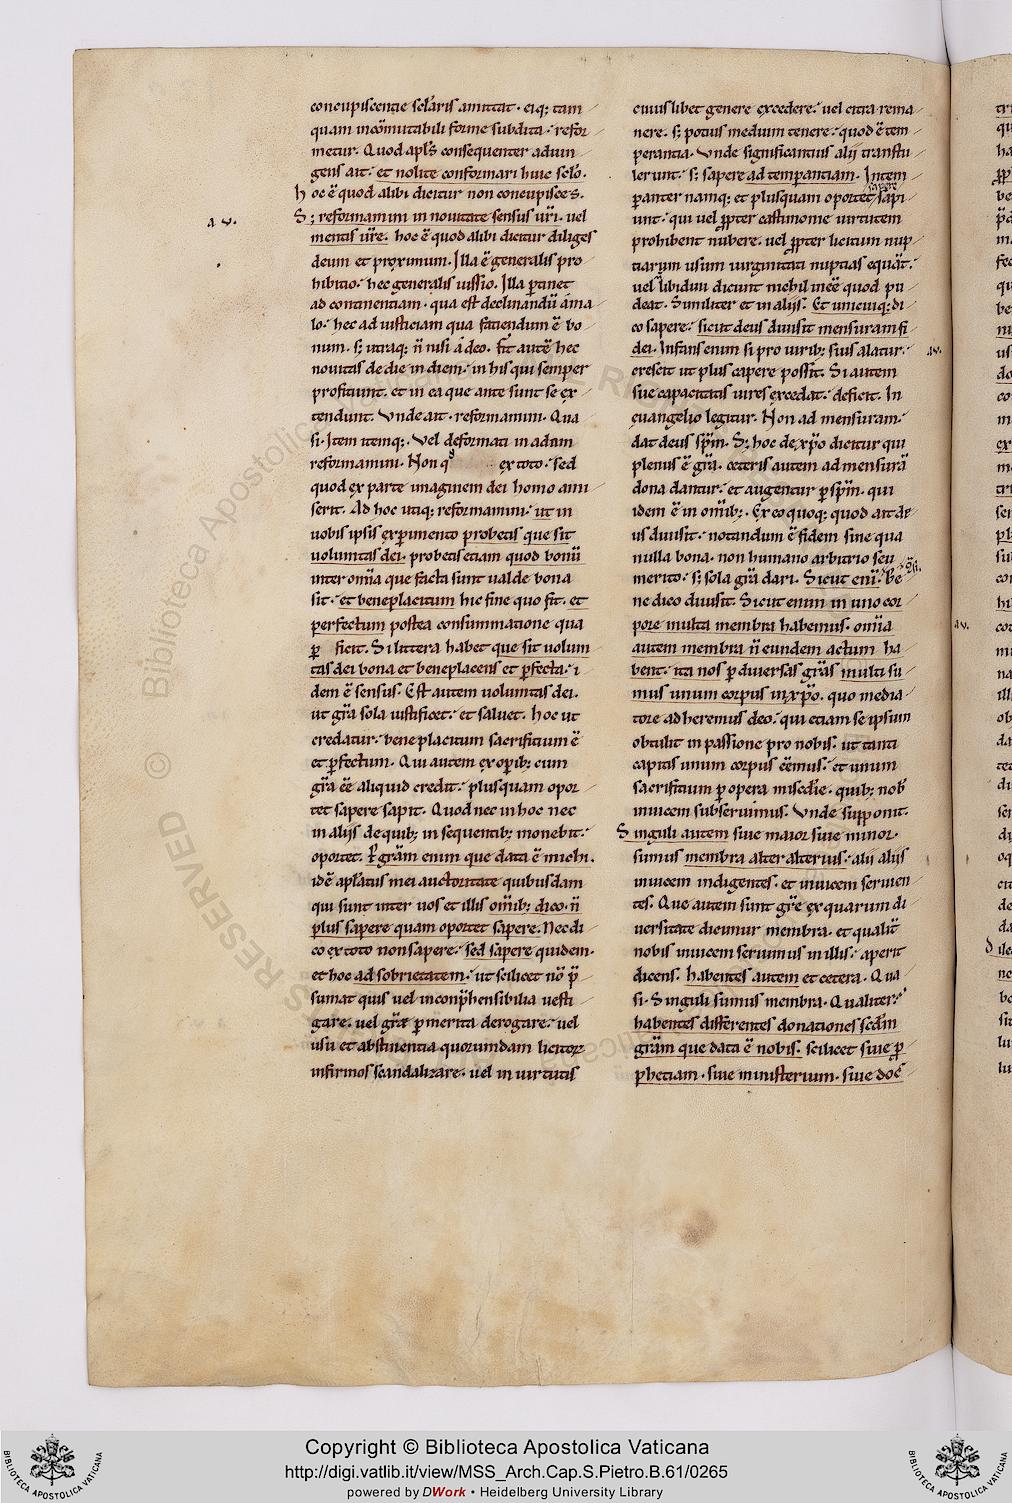 concupiscentie sclaris amittat · eiq; tam
quam incōmutabili forme subdita · refor
metur. Quod apłs consequenter adiun
gens ait · et nolite conformari huic sclo.
hoc ē quod alibi dicitur non concupisces.
S; reformamini in nouitate sensus ur̄i. uel
mentis ur̄e. hoc ē quod alibi dicitur diliges
deum et proximum. Illa ē generalis pro
hibitio · hec generalis iussio. Illa ꝑtinet
ad continentiam · qua est declinandū a ma
lo · hec ad iusticiam qua faciendum ē bo
num. s; utraq; n̄ nisi a deo. fit autē hec
nouitas de die in diem · in his qui semper
proficiunt. et in ea que ante sunt se ex
tendunt. Vnde ait · reformamini. Qua
si. Item itemq;. Vel deformati in adam
reformamini. Non q ex toto · sed
quod ex parte imaginem dei homo ami
serit. Ad hoc utiq; reformamini · ut in
uobis ipsis experimento probetis que sit
uoluntas dei. probetis etiam quod bonū
inter omīa que facta sunt ualde bona
sit · et beneplacitum hic fine quo fit. et
perfectum postea consummatione qua
ꝑ ficit. Si littera habet que sit uolun
tas dei bona et beneplacens et ꝑfecta · i
dem ē sensus. Est autem uoluntas dei.
ut gr̄a sola iustificet · et saluet. hoc ut
credatur · beneplacitum sacrificium ē
et ꝑfectum. Qui autem ex oꝑib; cum
gr̄a ēe aliquid credit · plusquam opor
tet sapere sapit. Quod nec in hoc nec
in alijs de quib; in sequentib; monebit ·
oportet. Ꝑ grām enim que data ē michi.
idē aplatus mei auctoritate quibusdam
qui sunt inter uos et illis om̄ib; dico · n̄
plus sapere quam oportet sapere. Nec di
co ex toto non sapere · sed sapere quidem ·
et hoc ad sobrietatem · ut scilicet nō p̄
sumat quis uel inconp̄hensibilia uesti
gare. uel gr̄ę ꝑ merita derogare · uel
usu et abstinentia quorumdam licitorum
infirmos scandalizare. uel in uirtutis
cuiuslibet genere excedere · uel citra rema
nere. s; potius medium tenere · quod ē tem
perantia. Vnde significantius alij transtu
lerunt · s; sapere ad temperantiam. Intem
sapere
ꝑanter namq; et plusquam oportet sapi
unt · qui uel ꝓpter castimonie uirtutem
prohibent nubere. uel ꝓpter licitum nup
tiarum usum uirginitati nuptias equāt ·
uel libidini dicunt nichil inēe quod pu
deat. Similiter et in alijs. Et unicuiq; di
co sapere · sicut deus diuisit mensuram fi
dei. Infans enim si pro uirib; suis alatur ·
crescit ut plus capere possit. Si autem
sue capacitatis uires excedat · deficit. In
euangelio legitur. Non ad mensuram ·
dat deus spm̄. S; hoc de xp̄o dicitur qui
plenus ē gr̄a. ceteris autem ad mensurā
dona dantur · et augentur ꝑ spm̄. qui
idem ē in om̄ib;. Ex eo quoq; quod ait de
us diuisit · notandum ē fidem sine qua
nulla bona. non humano arbitrio seu
merito · s; sola gr̄a dari. Sicut eni. Be
ne dico diuisit. Sicut enim in uno cor
pore multa membra habemus. omīa
autem membra n̄ eundem actum ha
bent · ita nos ꝑ diuersas gr̄as multi su
mus unum corpus in xp̄o. quo media
tore adheremus deo · qui etiam se ipsum
obtulit in passione pro nobis. ut tanti
capitis unum corpus ēemus · et unum
sacrificium ꝑ opera miscdīe. quib; nob
inuicem subseruimus. Vnde supponit.
Singuli autem siue maior siue minor.
sumus membra alter alterius · alij alijs
inuicem indigentes. et inuicem seruien
tes. Que autem sunt gr̄e ex quarum di
uersitate dicimur membra. et qualit̄
nobis inuicem seruimus in illis · aperit
dicens. habentes autem et cetera. Qua
si. Singuli sumus membra. Qualiter ·
habentes differentes donationes scdm̄
grām que data ē nobis. scilicet siue ꝓ
phetiam. siue ministerium. siue doc
Copyright © Biblioteca Apostolica Vaticana
http://digi.vatlib.it/view/MSS_Arch.Cap.S.Pietro.B.61/0265
powered by DWork • Heidelberg University Library